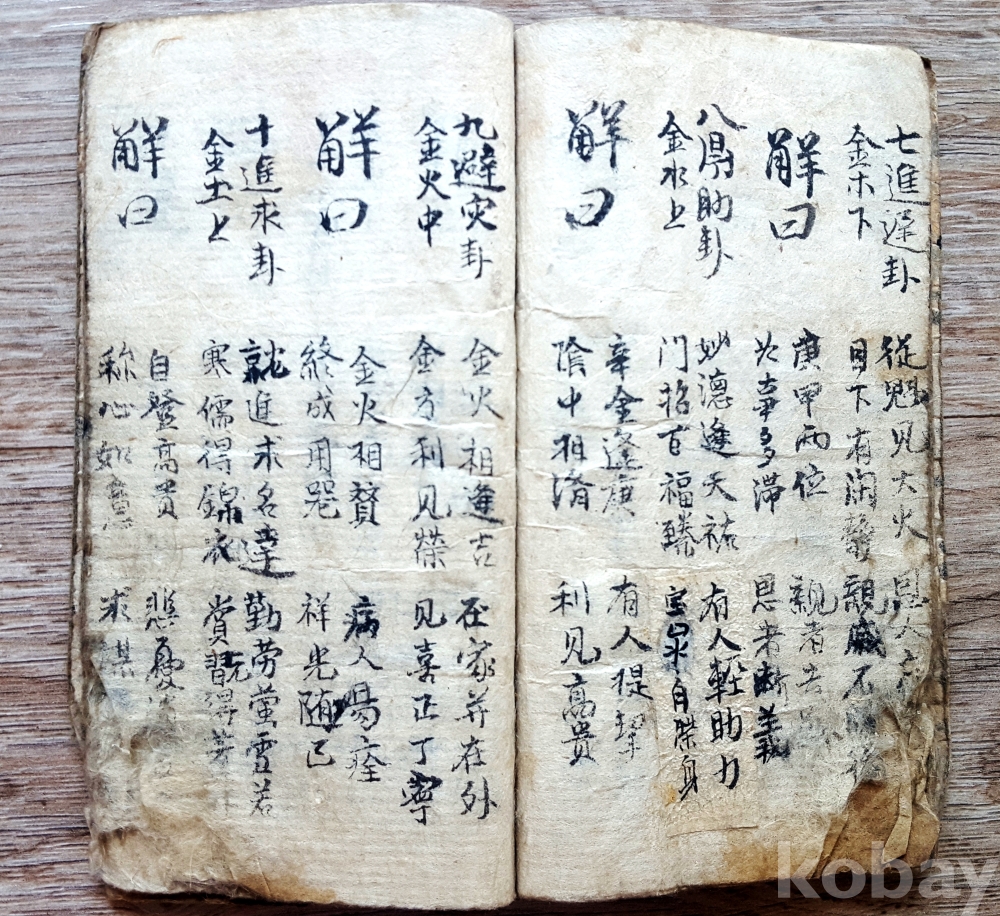 七進遲卦
金木下
從魁見大火
目下有閑
親戚不
解曰
庚甲兩位
於事多滯
親者去
思者断義
八得助卦
金水上
妙德逢天祐
有人輕助力
门招百福臻
宝泉自榮身
解曰
辛金逢庚
有人提挈
陰中相濟
利见高貴
九避灾卦
金火中
金火相逢吉
在家并在外
金方利见榮
见喜正丁寧
解曰
金火相賛
病人楊痊
終成用器
祥光随已
十進求卦
金土上
就進求名達
勤劳萤雪若
寒儒得錦衣
賞翫得
解曰
自登高貴
悲憂
称心如意
求謀
kobay